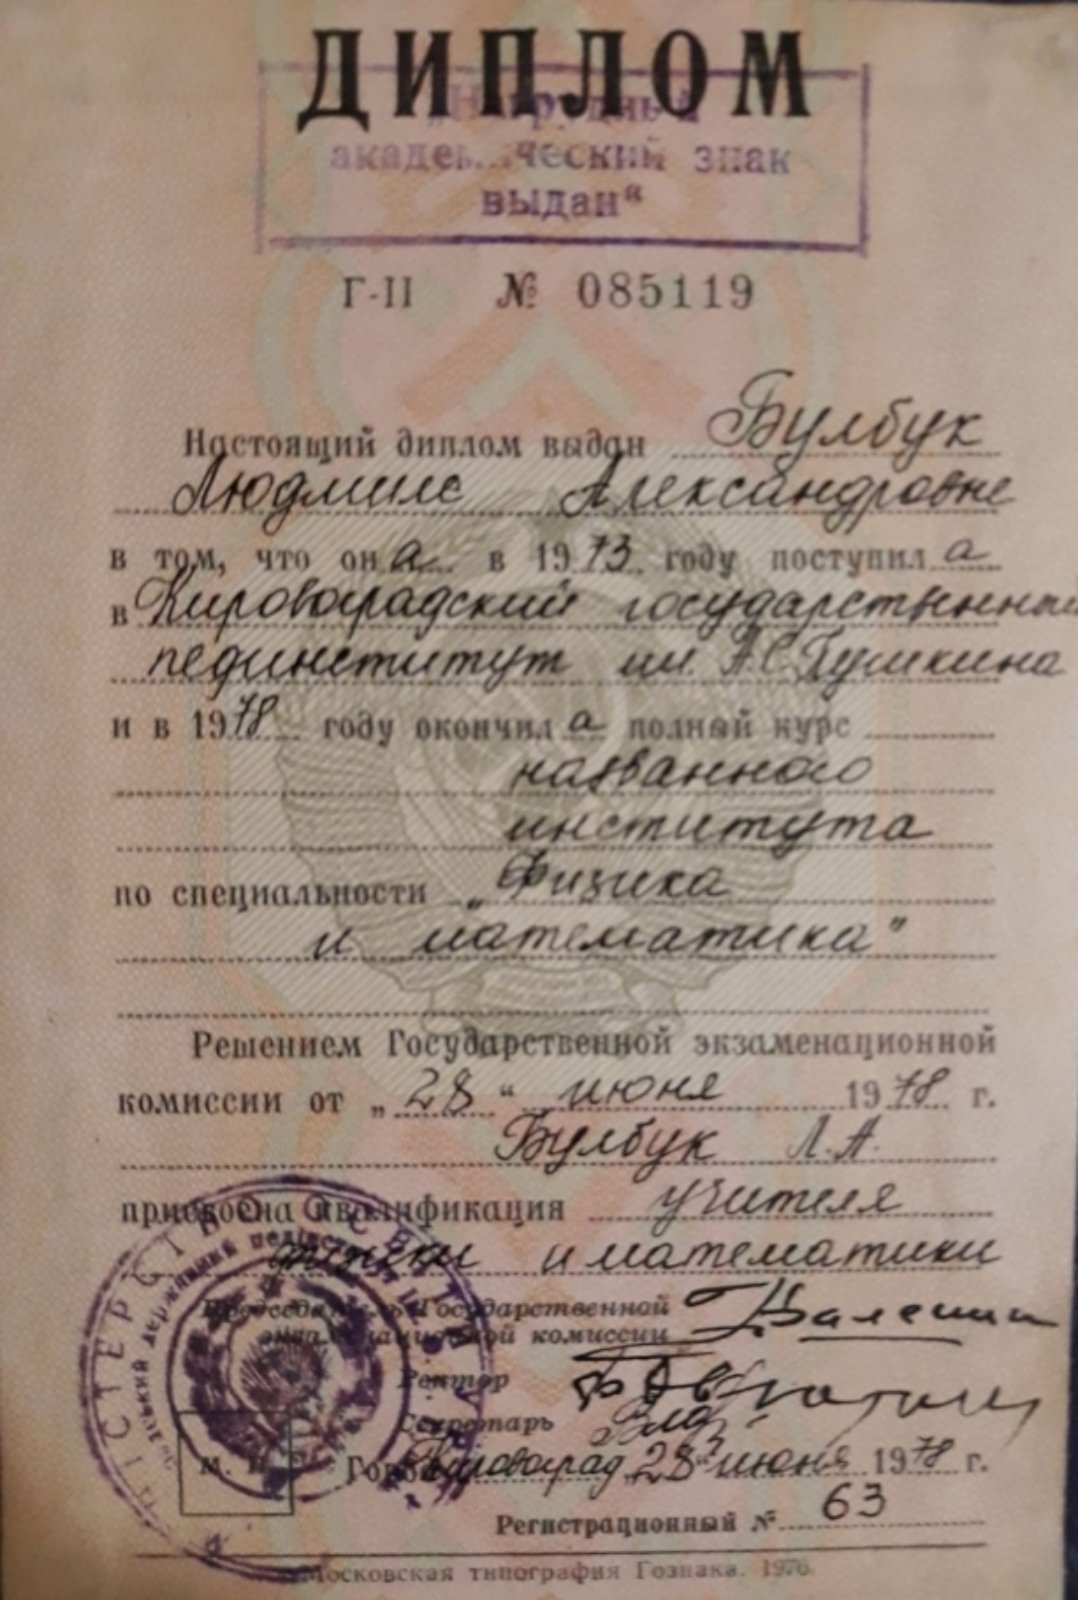 ДИПЛОМ
„Нагрудный
академический знак
выдан“
Г-II № 085119
Настоящий диплом выдан Булбук
Людмиле Александровне
в том, что она в 1973 году поступила
в Кировоградский государственный
пединститут им. А.С. Пушкина
и в 1978 году окончила полный курс
названного
института
по специальности „Физика
и математика"
Решением Государственной экзаменационной
комиссии от „28“ июня 1978 г.
Булбук Л.А.
присвоена квалификация учителя
физики и математики
Председатель Государственной
экзаменационной комиссии
Ректор
Секретарь
Город Кировоград „28“ июня 1978 г.
М. П.
Регистрационный № 63
Московская типография Гознака. 1976.